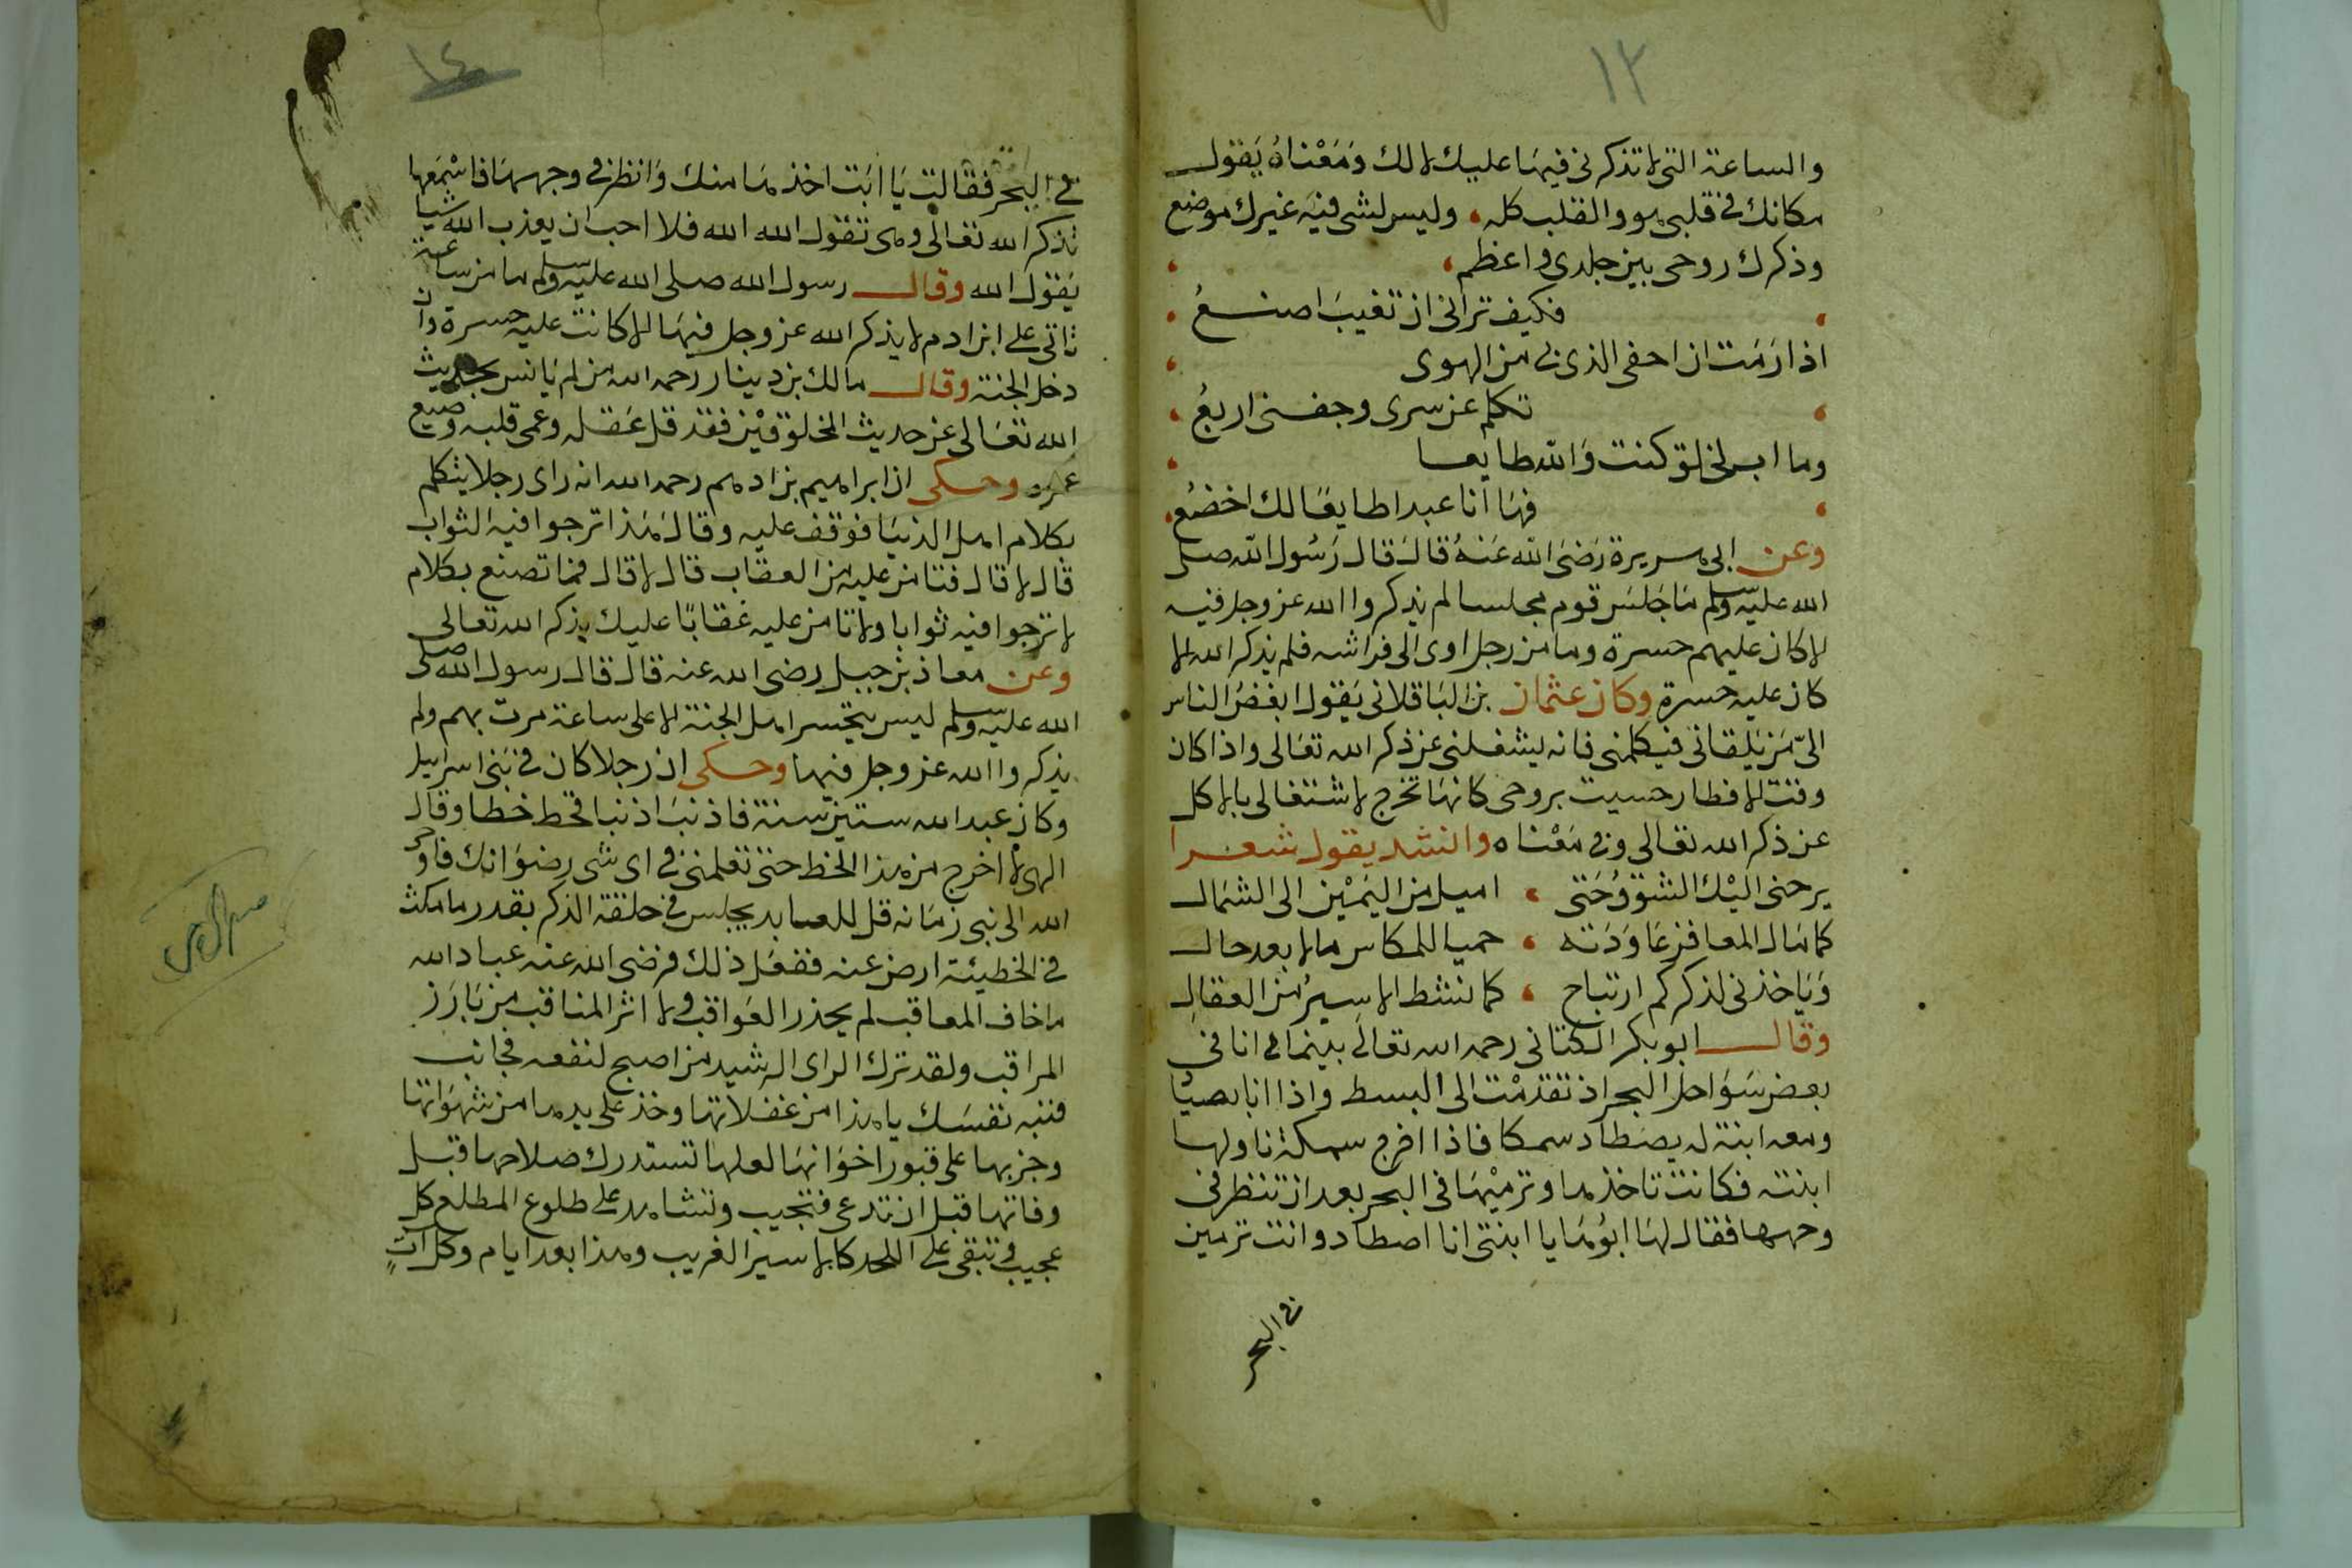 ١٣
والساعة التى لا تذكرنى فيها عليك لا لك ومعناه يقول
مكانك فى قلبى هو والقلب كله، وليس لشى فيه غيرك موضع
وذكرك روحى بين جلدى واعظم،
فكيف ترانى ان تغيب اصنع
اذا رمت ان احفى الذى بى من الهوى
تكلم عن سرى وجفنى اربع
وما لخلق كنت والله طايعا
فها انا عبدا طايعا لك اخضع
وعن ابى هريرة رضى الله عنه قال قال رسول الله صلى
الله عليه وسلم ما جلس قوم مجلسا لم يذكروا الله عز وجل فيه
الا كان عليهم حسرة وما من رجل اوى الى فراشه فلم يذكر الله الا
كان عليه حسرة وكان عثمان بن الباقلانى يقول ابغض الناس
الىّ من يلقانى فيكلمنى فانه يشغلنى عن ذكر الله تعالى واذا كان
وقت الافطار حسيت بروحى كانها تخرج لاشتغالى بالاكل
عن ذكر الله تعالى وفى معناه وانشد يقول شعرا
يرحنى اليك الشوق حتى ، اميل من اليمين الى الشمال
كما مال المعافر عاودته ، حميا للكاس حالا بعد حال
وياخذنى لذكركم ارتياح ، كما نشط الاسير من العقال
وقال ابو بكر الكتانى رحمه الله تعالى بينما انا فى
بعض سواحل البحر اذ تقدمت الى البسط واذا انا بصياد
ومعه ابنة له يصطاد سمكا فاذا اخرج سمكة ناولها
ابنته فكانت تاخذها وترميها فى البحر بعد ان تنظر فى
وجهها فقال لها ابوها يا ابنتى انا اصطاد وانت ترمين
فى البحر
١٤
فى البحر فقالت يا ابت اخذها منك وانظر فى وجهها فاسمعها
تذكر الله تعالى وهى تقول الله الله فلا احب ان يعذب الله شيا
يقول الله وقال رسول الله صلى الله عليه وسلم ما من ساعة
تاتى على ابن ادم لا يذكر الله عز وجل فيها الا كانت عليه حسرة وان
دخل الجنة وقال مالك بن دينار رحمه الله من لم يانس بحديث
الله تعالى عن حديث المخلوقين فقد قل عقله وعمى قلبه وضيع
عمره وحكى ان ابراهيم بن ادهم رحمه الله انه راى رجلا يتكلم
بكلام اهل الدنيا فوقف عليه وقال هذا ترجوا فيه الثواب
قال لا قال فتامن عليه من العقاب قال لا قال فما تصنع بكلام
لا ترجوا فيه ثوابا ولا تامن عليه عقابا عليك بذكر الله تعالى
وعن معاذ بن جبل رضى الله عنه قال قال رسول الله صلى
الله عليه وسلم ليس يتحسر اهل الجنة الا على ساعة مرت بهم ولم
يذكروا الله عز وجل فيها وحكى ان رجلا كان فى بنى اسرايل
وكان عبد الله ستين سنة فاذنب اذنبا فخط خطا وقال
الهى لا اخرج من هذا الخط حتى تعلمنى فى اى شى رضوانك فاوحى
الله الى نبى زمانه قل للعابد يجلس فى حلقة الذكر بقدر ما مكث
فى الخطيئة ارض عنه ففعل ذلك فرضى الله عنه عباد الله
ما خاف المعاقب لم يحذر العواقب ولا اثر المناقب من بارز
المراقب ولقد ترك الراى الرشيد من اصبح لنفعه مجانب
فنبه نفسك يا هذا من غفلاتها وخذ على يدها من شهواتها
وجز بها على قبور اخوانها لعلها تستدرك صلاحها قبل
وفاتها قبل ان تدعى فتجيب وتشاهد على طلوع المطلع كل
عجيب وتبقى على اللحد كالاسير الغريب وهذا بعد ايام وكل ات